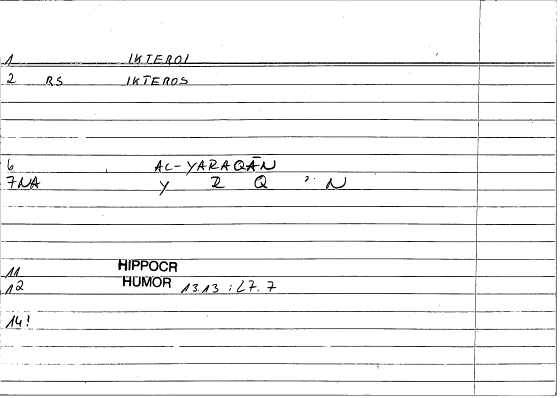 1 IKTEROI
2 RS IKTEROS
6 AL-YARAQĀN
7NA Y R Q ʾ N
11 HIPPOCR
12 HUMOR 13.13 : L7, 7
14!